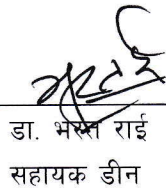 डा. भरत राई
सहायक डीन